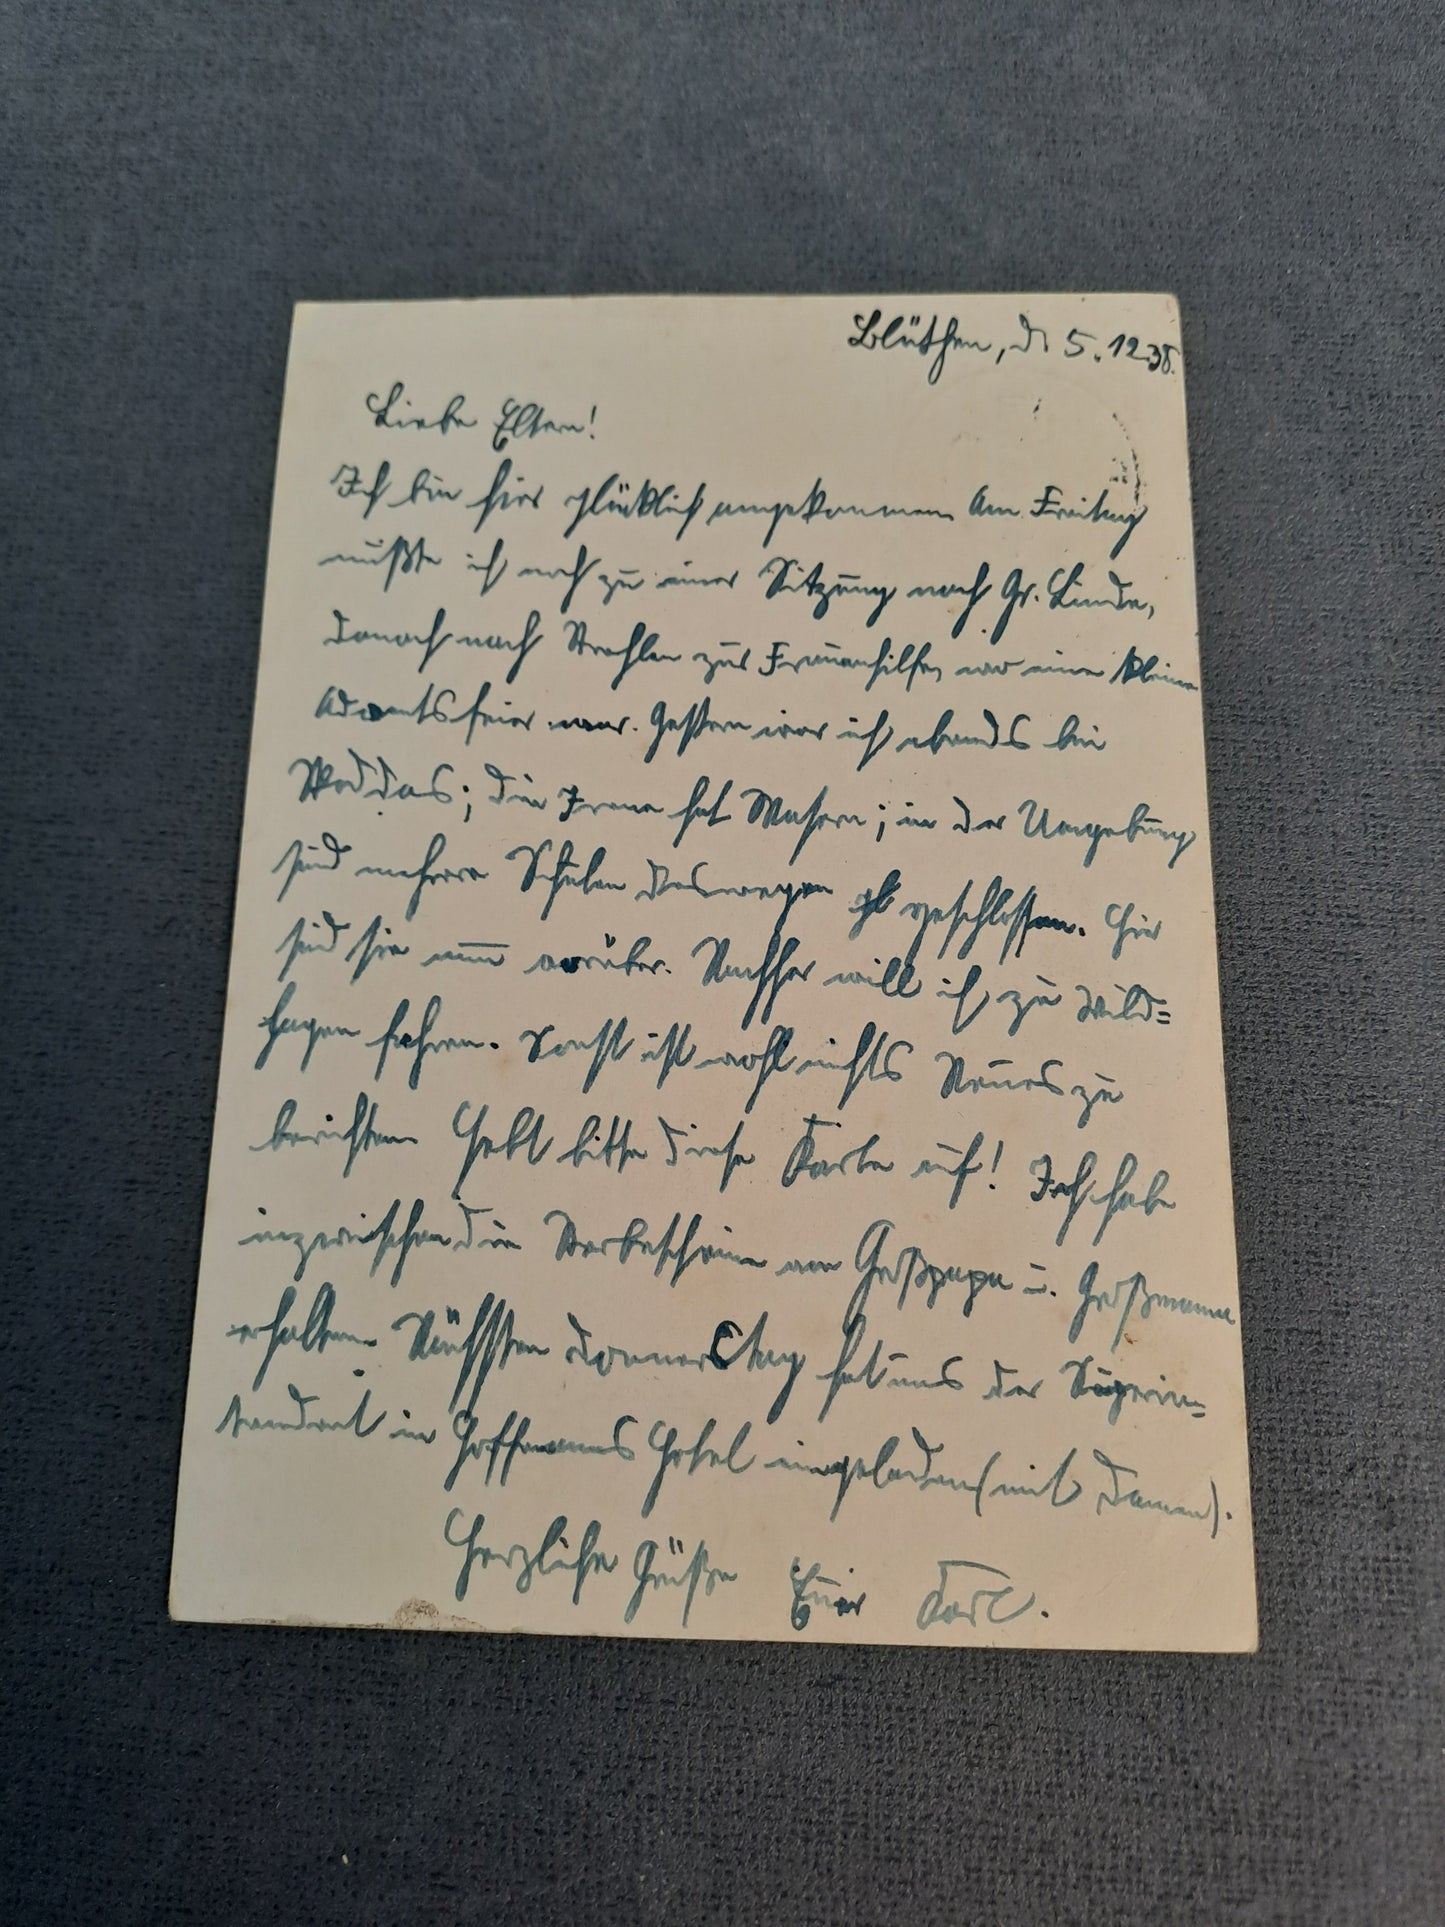 Blüthen, d. 5.12.38.
Liebe Eltern!
Ich bin hier glücklich angekommen. Am Freitag
mußte ich noch zu einer Sitzung nach Gr. Linde,
danach nach Strehlen zur Frauenhilfe, wo eine kleine
Adventsfeier war. Gestern war ich abends bei
die Frau hat Masern; in der Umgebung
sind mehrere Schulen deswegen geschlossen. Hier
sind sie nun vorüber. Nachher will ich zu Wild=
hagen fahren. Sonst ist wohl nichts Neues zu
berichten. Hebt bitte diese Karte auf! Ich habe
inzwischen die Sterbescheine von Großpapa u. Großmama
erhalten. Nächsten Donnerstag hat uns der Superin=
tendent in Hoffmanns Hotel eingeladen (mit Damen).
Herzliche Grüße Euer Karl.